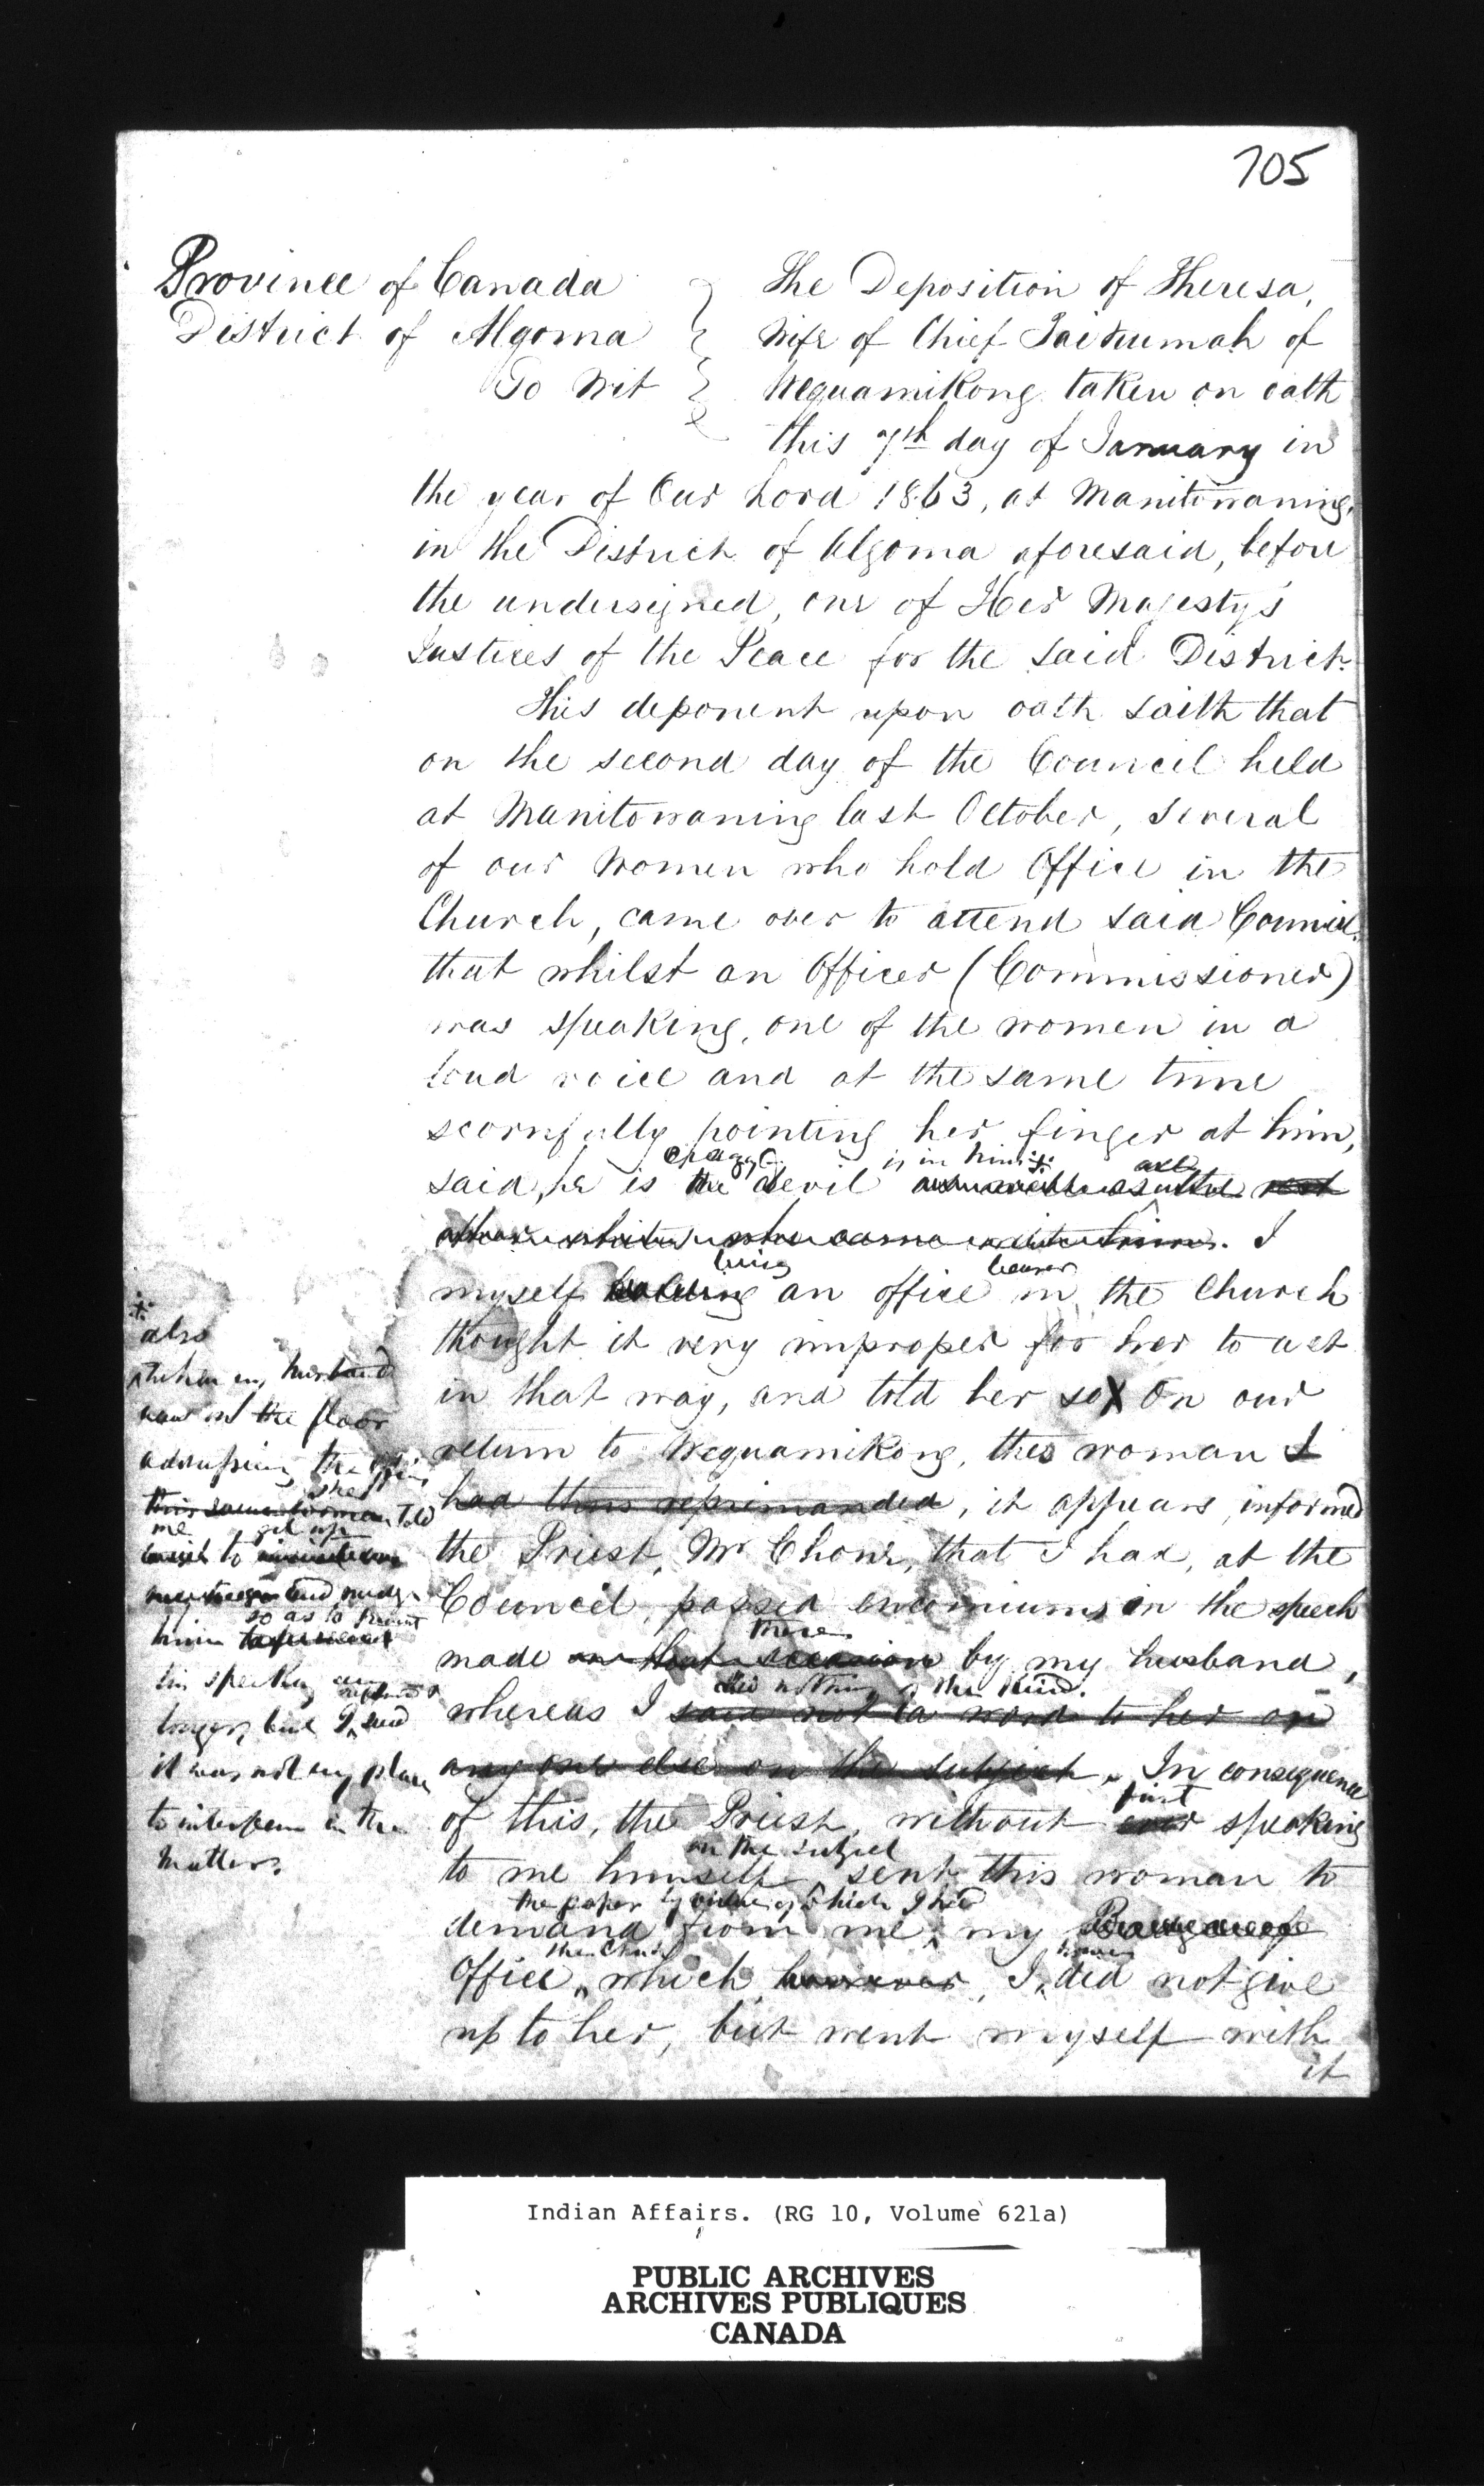 705
Province of Canada
District of Algoma
To Wit
The Deposition of Theresa,
Wife of Chief Taitumah of
Wequamikong taken on oath
this 7th day of January in
the year of Our Lord 1863, at Manitowaning,
in the District of Algoma aforesaid, before
the undersigned, one of Her Majesty's
Justices of the Peace for the said District.
This deponent upon oath saith that
on the second day of the Council held
at Manitowaning last October, several
of our Women who hold Office in the
Church, came over to attend said Council.
that whilst an Officer (Commissioner)
was speaking, one of the women in a
loud voice and at the same time
scornfully pointing her finger at him,
is in him
said, he is the devil as the rest
other whites who came with him. I
being bearer
myself holding an office in the Church
thought it very improper for her to act
in that way, and told her so X On our
return to Wequamikong, this woman I
had thus reprimanded, it appears, informed
the Priest, Mr Chone, that I had, at the
Council, passed encomiums on the speech
there
made on that occasion by my husband,
did nothing of the kind.
whereas I said not a word to her or
any one else on the subject. In consequence
first
of this, the Priest, without ever speaking
on the subject
to me himself sent this woman to
the paper by virtue of which I held
demand from me, my
the Church
Office, which however, I did not give
up to her, but went myself with
it
also
when my husband
was on the floor
addressing the
she
this same woman told
me get up
to
and nudge
so as to prevent
him
his speaking any
longer, but I said
it was not my place
to interfere in the
matter.
Indian Affairs. (RG 10, Volume 621a)
PUBLIC ARCHIVES
ARCHIVES PUBLIQUES
CANADA